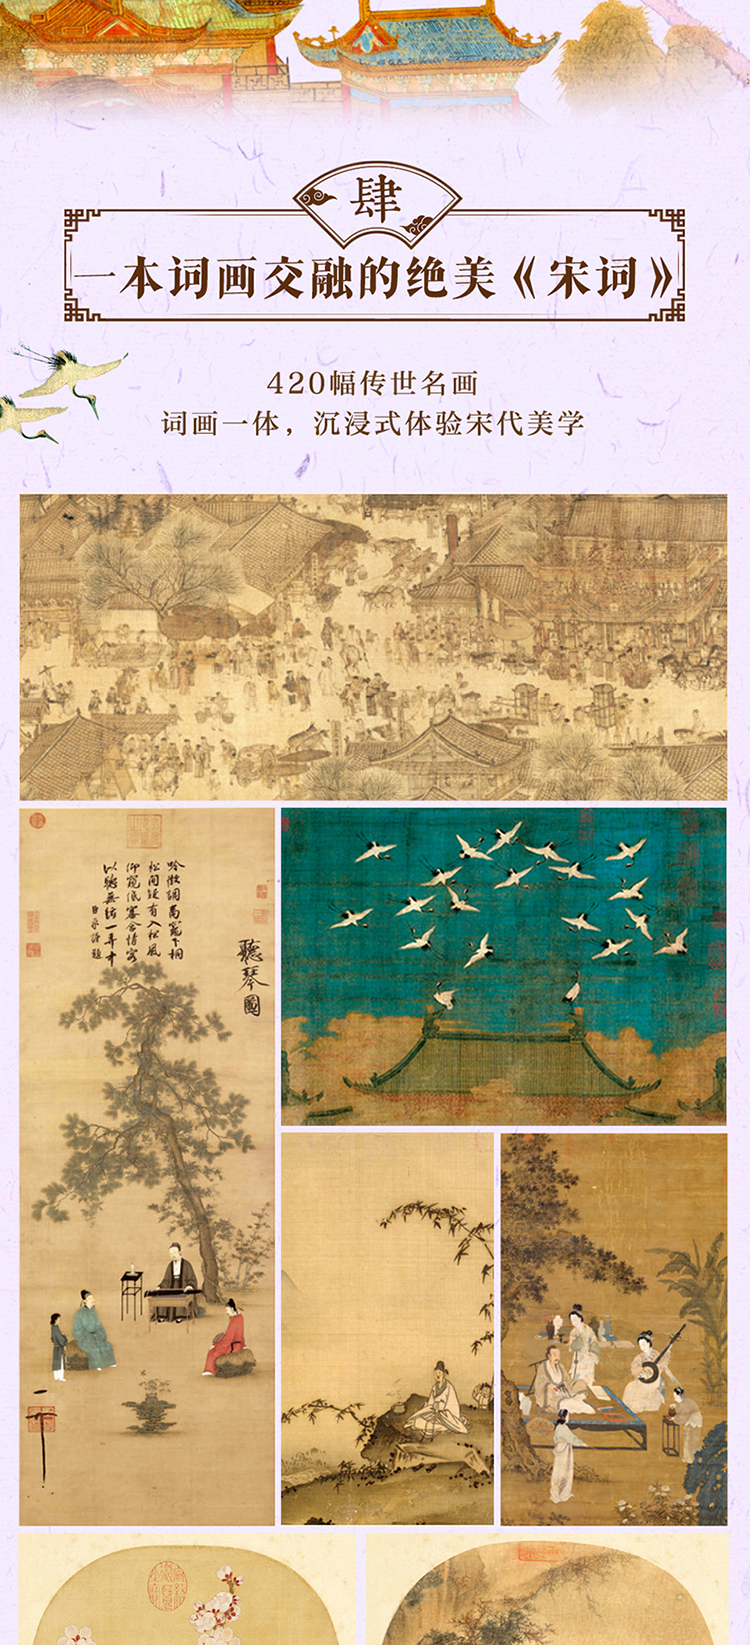 肆
一本词画交融的绝美《宋词》
420幅传世名画
词画一体，沉浸式体验宋代美学
吟徵調商竈下桐
松間疑有入松風
仰窺低審含情客
以聽無絃一弄中
臣京謹題
聽琴圖